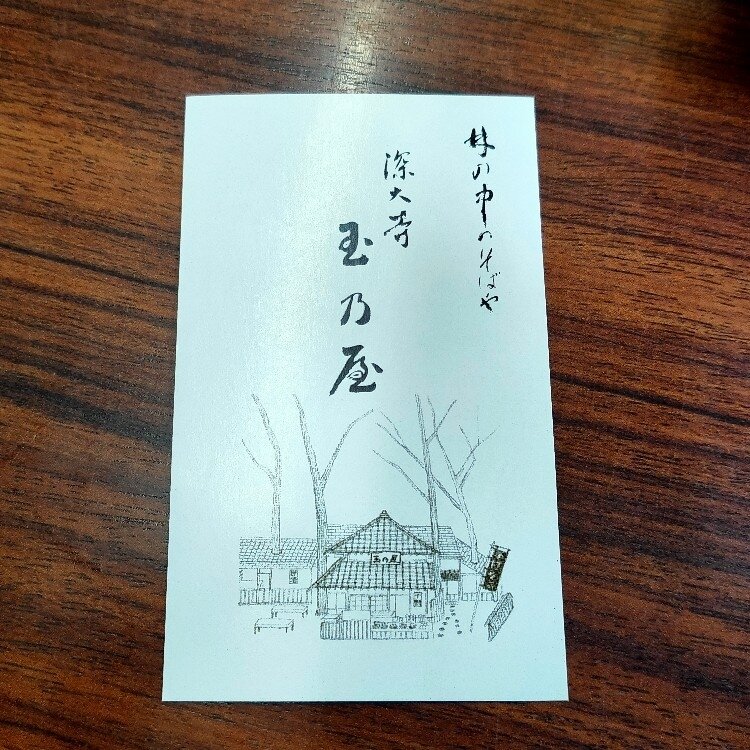 林の中のそばや
深大寺
玉乃屋
玉乃屋